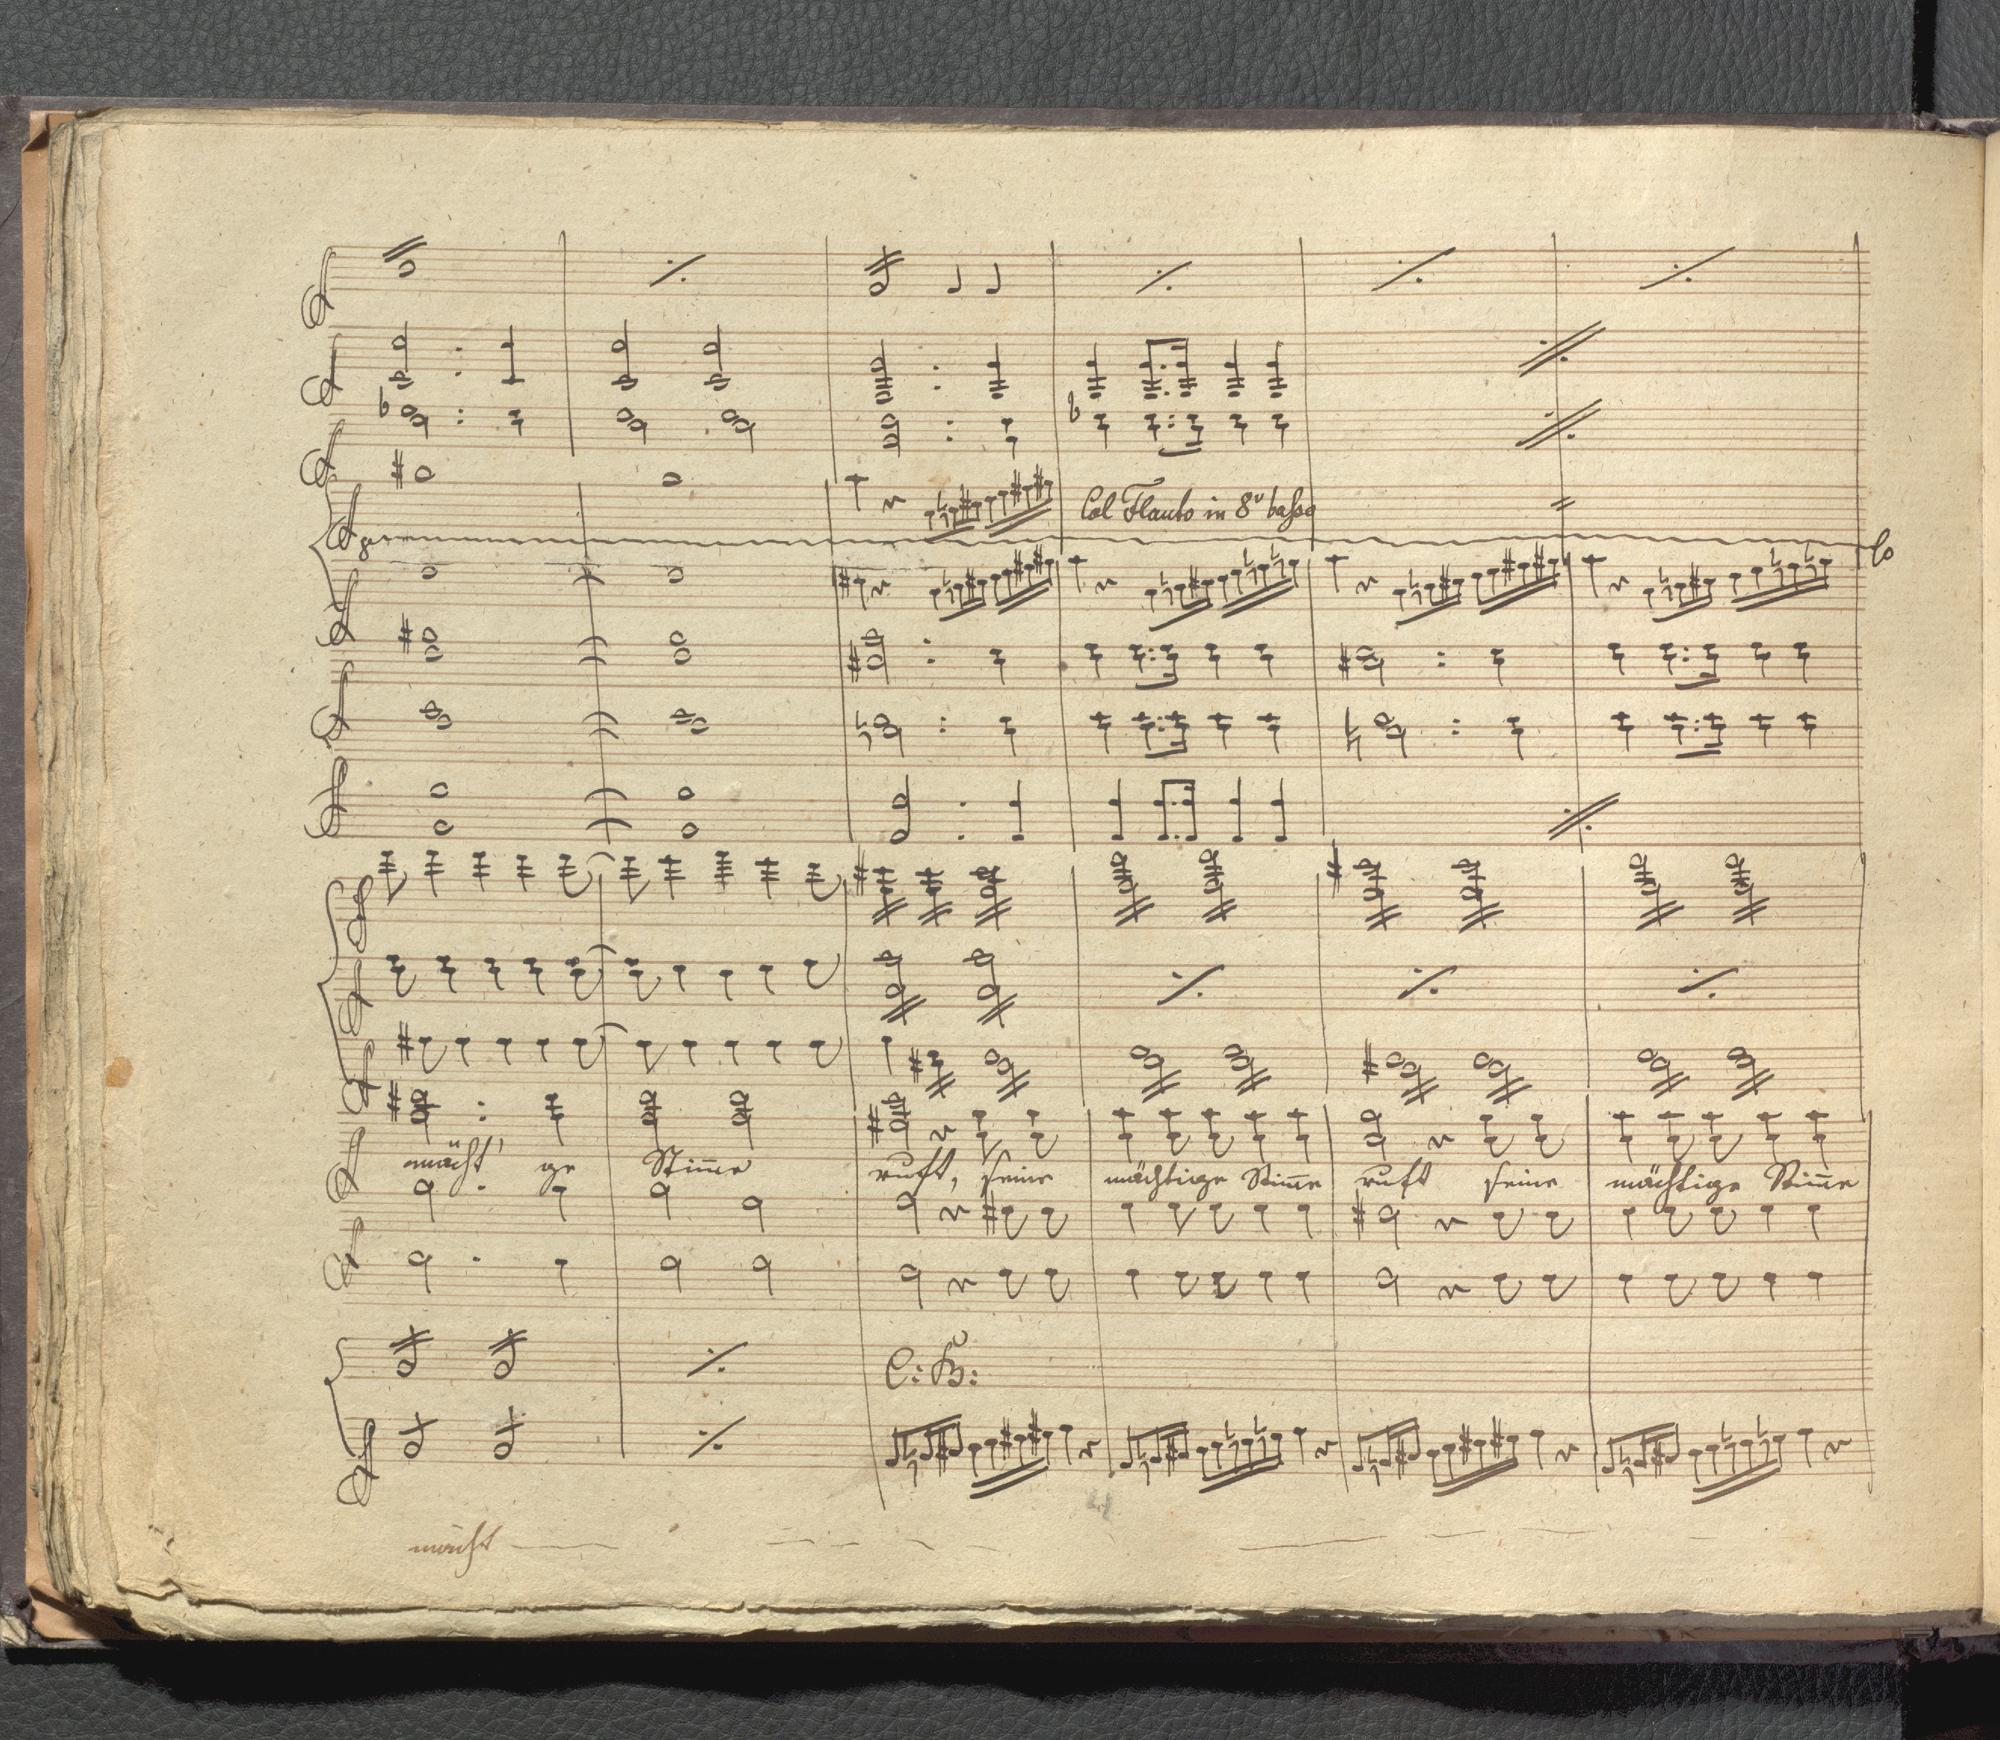 Col Flauto in 8ᵛ basso
Co
mächt' ge Stim̄e ruft, seine mächtige Stim̄e ruft seine mächtige Stim̄e
C: B:
mächt